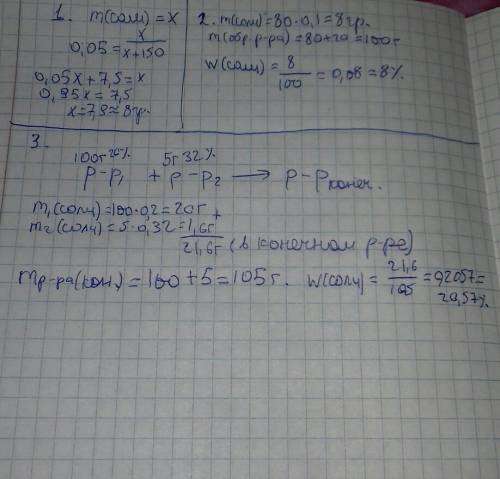 1. m(соли) = x
0,05 = x/x+150
0,05x + 7,5 = x
0,95x = 7,5
x = 7,9 ≈ 8гр.
2. m(соли) = 80 · 0,1 = 8гр.
m(обр. р-ра) = 80+20 = 100г
W(соли) = 8/100 = 0,08 = 8%
3.
100г 20% 5г 32%
р-р1 + р-р2 → р-р конеч.
m1(соли) = 100 · 0,2 = 20г +
m2(соли) = 5 · 0,32 = 1,6г
21,6г (в конечном р-ре)
mр-ра(кон.) = 100 + 5 = 105г. W(соли) = 21,6/105 = 0,2057 =
20,57%